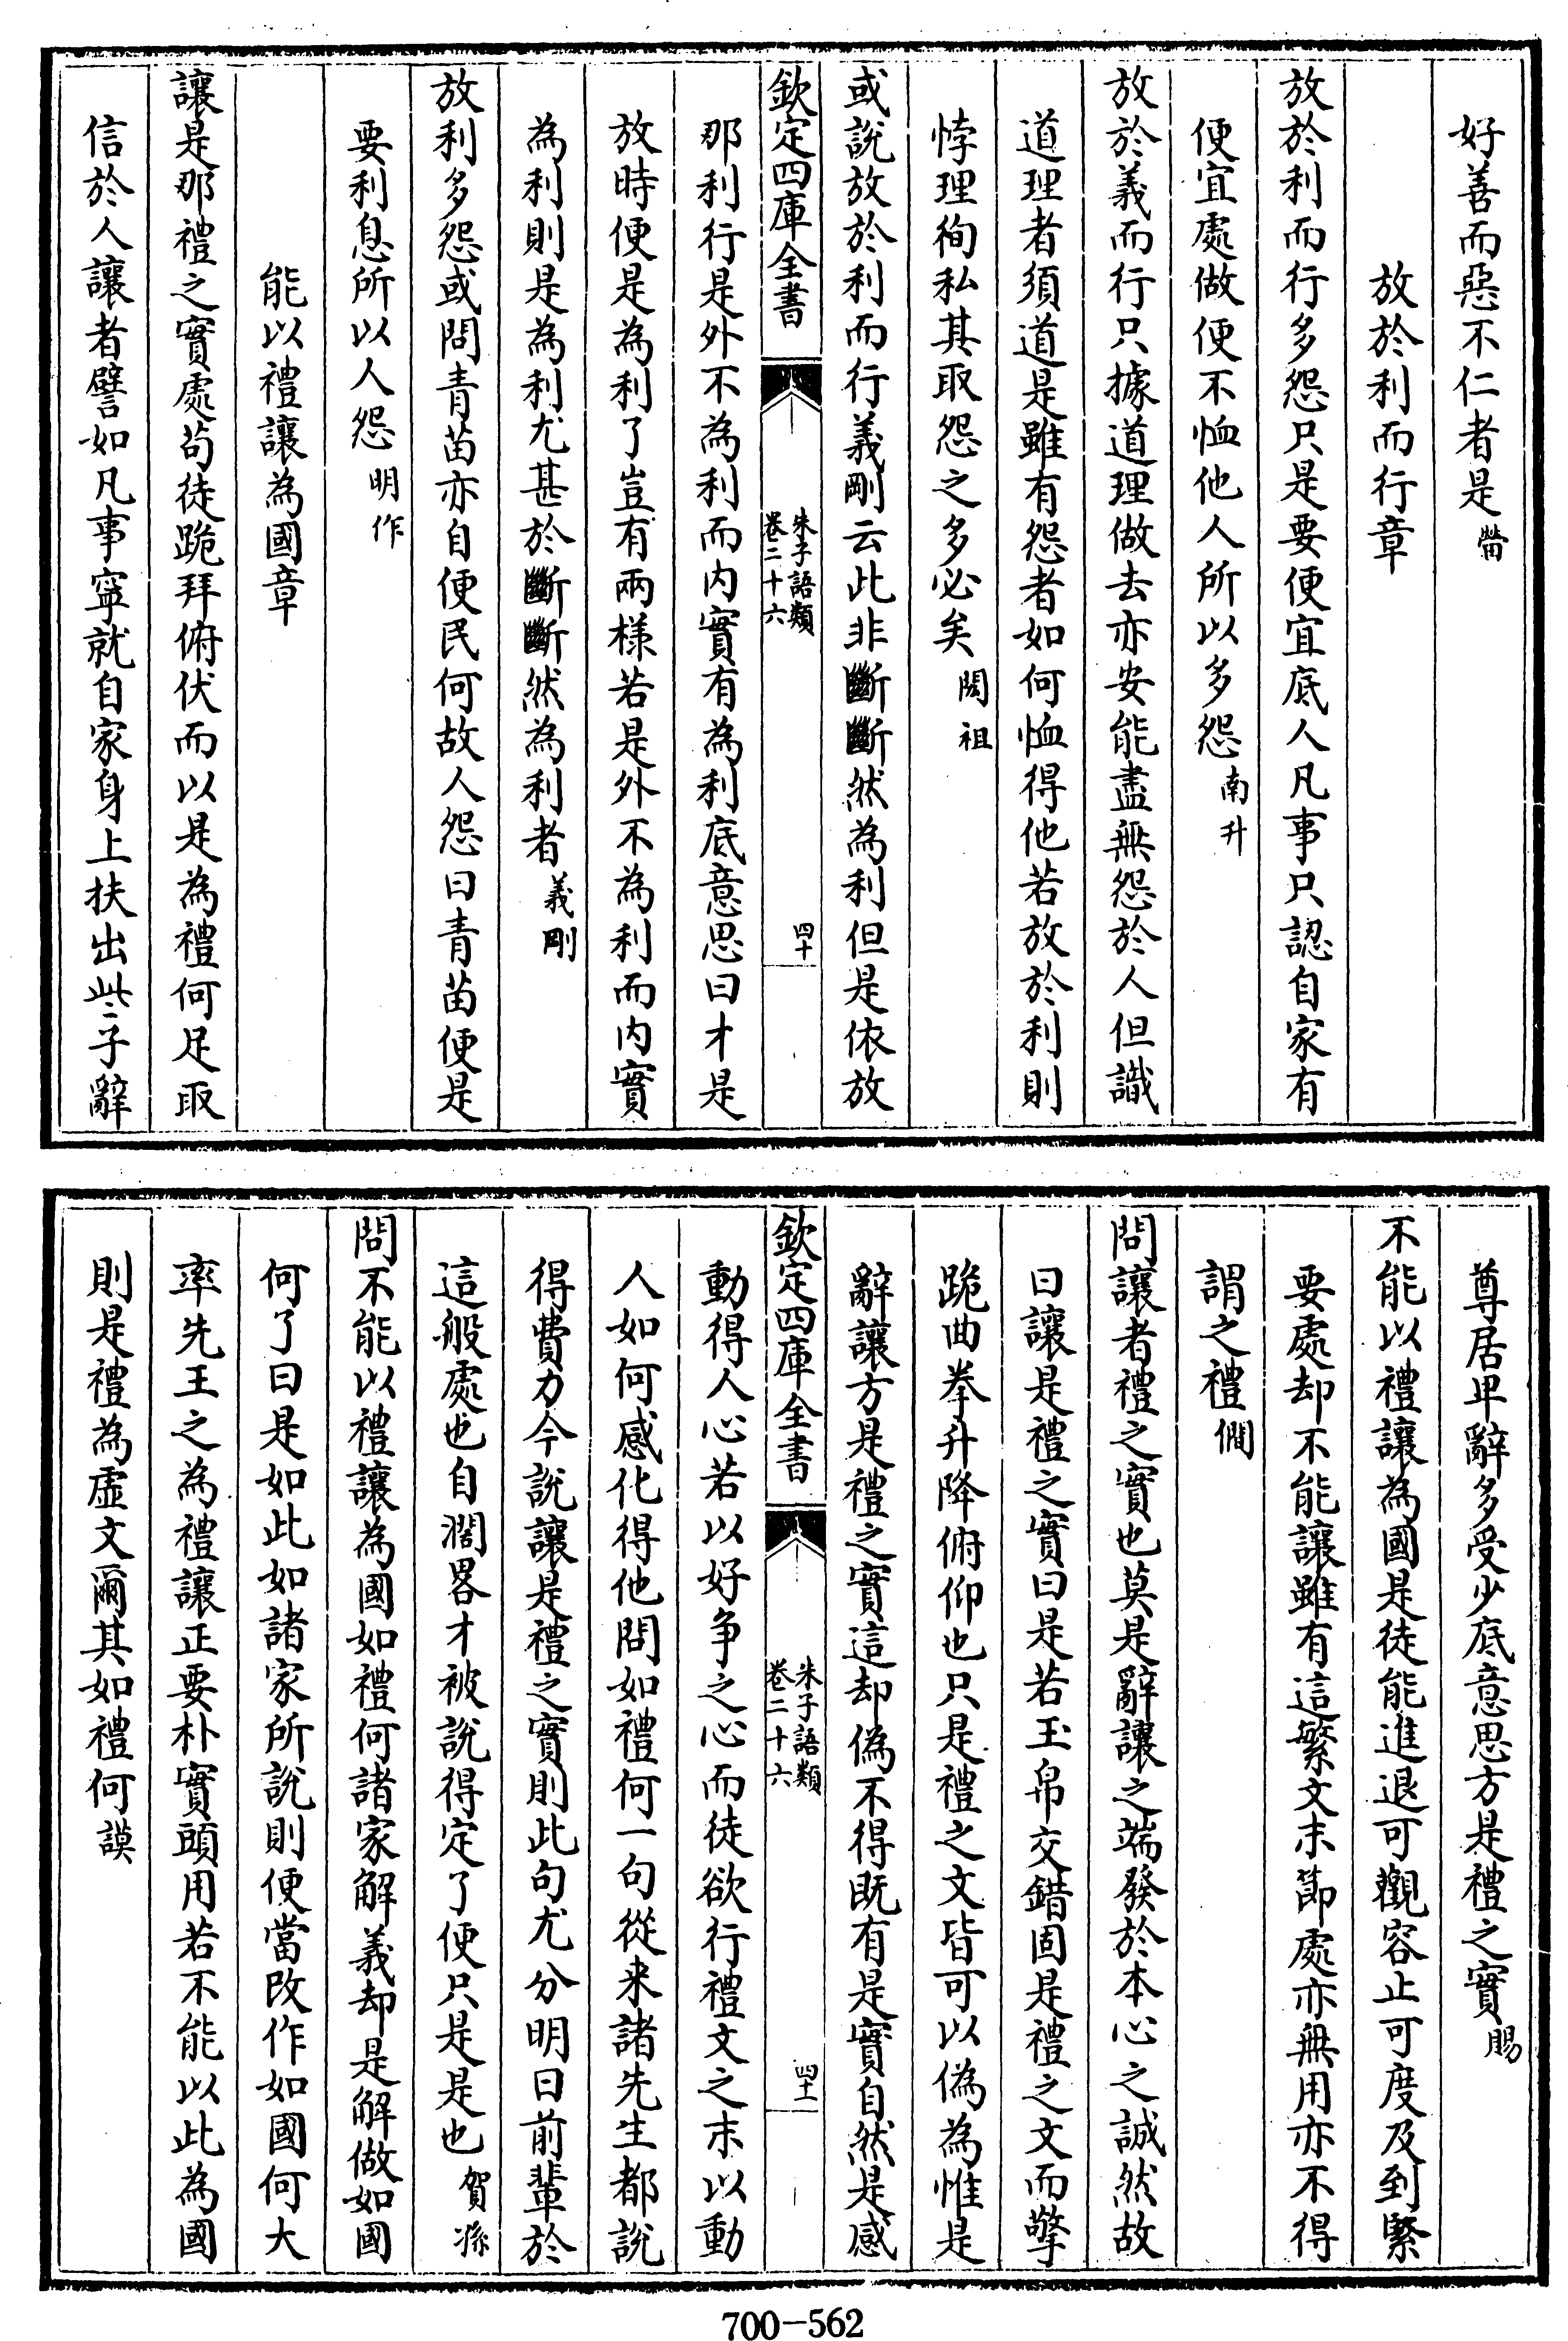 好善而惡不仁者是㽦
放於利而行章
放於利而行多怨只是要便宜底人凡事只認自家有
便宜處做便不恤他人所以多怨南升
放於義而行只據道理做去亦安能盡無怨於人但識
道理者須道是雖有怨者如何恤得他若放於利則
悖理徇私其取怨之多必矣閎祖
或說放於利而行義剛云此非斷斷然為利但是依放
欽定四庫全書
朱子語類
卷二十六
四十
那利行是外不為利而内實有為利底意思曰才是
放時便是為利了豈有兩様若是外不為利而内實
為利則是為利尤甚於斷斷然為利者義剛
放利多怨或問青苗亦自便民何故人怨曰青苗便是
要利息所以人怨明作
能以禮讓為國章
讓是那禮之實處茍徒跪拜俯伏而以是為禮何足取
信於人讓者譬如凡事寧就自家身上扶出些子辭
尊居卑辭多受少底意思方是禮之實賜
不能以禮讓為國是徒能進退可觀容止可度及到緊
要處却不能讓雖有這繁文末節處亦無用亦不得
謂之禮僩
問讓者禮之實也莫是辭讓之端發於本心之誠然故
曰讓是禮之實曰是若玉帛交錯固是禮之文而擎
跪曲拳升降俯仰也只是禮之文皆可以偽為惟是
辭讓方是禮之實這却偽不得既有是實自然是感
欽定四庫全書
朱子語類
卷二十六
四十一
動得人心若以好争之心而徒欲行禮文之末以動
人如何感化得他問如禮何一句從来諸先生都說
得費力今說讓是禮之實則此句尤分明曰前輩於
這般處也自濶畧才被說得定了便只是是也賀孫
問不能以禮讓為國如禮何諸家解義却是解做如國
何了曰是如此如諸家所說則便當改作如國何大
率先王之為禮讓正要朴實頭用若不能以此為國
則是禮為虛文爾其如禮何謨
700-562